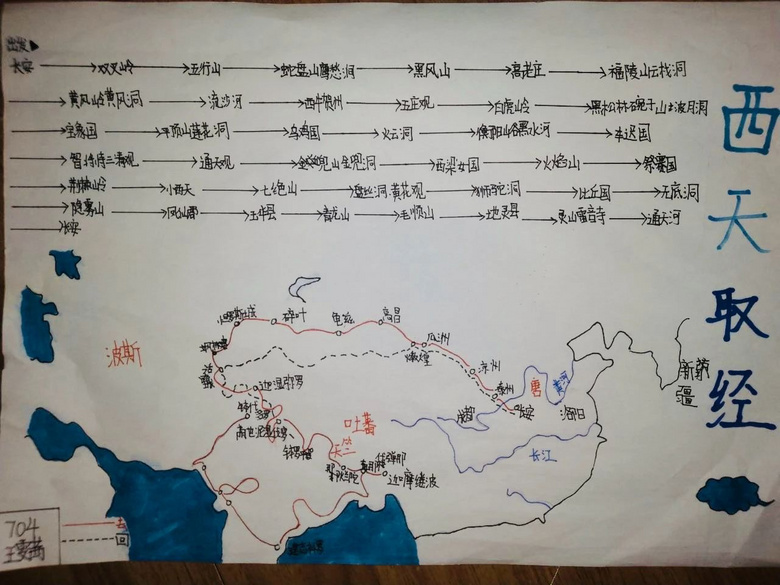 出发
长安 双叉岭 五行山 蛇盘山鹰愁涧 黑风山 高老庄 福陵山云栈洞
黄风岭黄风洞 流沙河 西牛贺州 五庄观 白虎岭 黑松林碗子山波月洞
宝象国 平顶山莲花洞 乌鸡国 火云洞 黑水河 车迟国
三清观 通天观 金兜山金兜洞 西梁女国 火焰山 祭赛国
荆棘岭 小西天 七绝山 盘丝洞 黄花观 狮驼洞 比丘国 无底洞
隐雾山 凤仙郡 玉华县 青龙山 毛颖山 地灵县 灵山雷音寺 通天河
长安
西天取经
碎叶
龟兹
高昌
瓜洲
敦煌
凉州
秦州
长安
洛阳
成都
唐
黄河
长江
新疆
波斯
吐蕃
天竺
迦湿弥罗
迦摩缕波
704
王雯茜
去
回